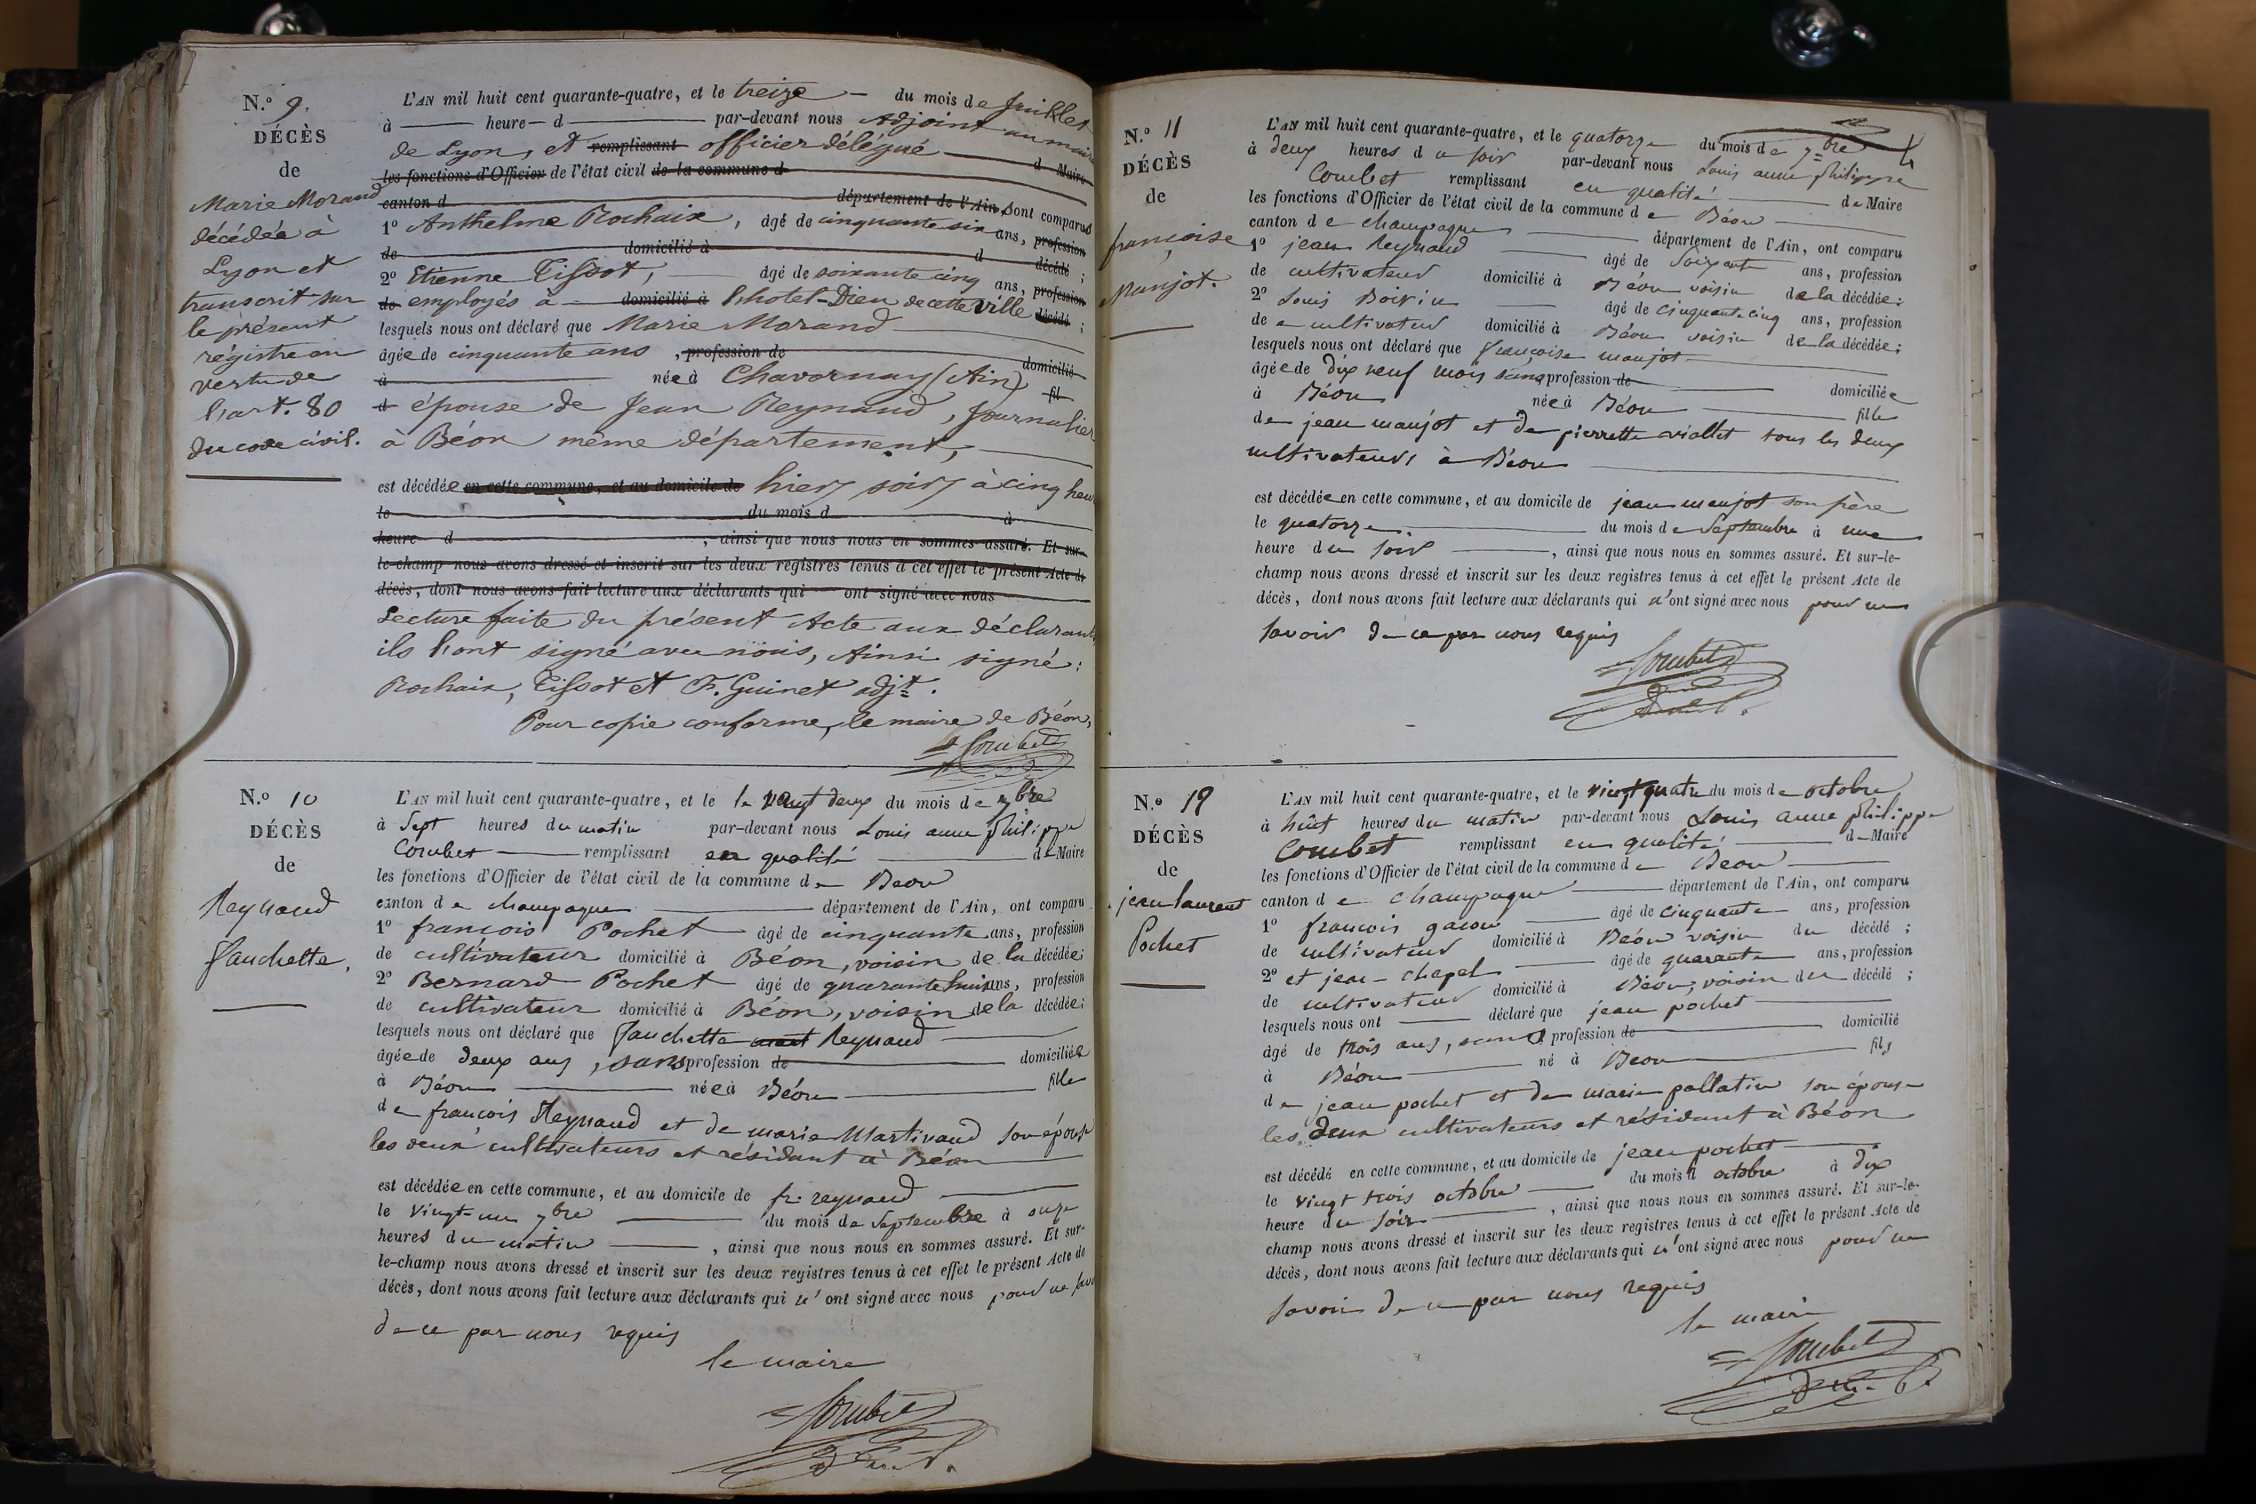 N.º 9.
DÉCÈS
de
Marie Morand
décédée à
Lyon et
transcrit sur
le présent
régistre en
vertu de
l'art. 80
du code civil.
L'AN mil huit cent quarante-quatre, et le treize du mois de Juillet
à heure d par-devant nous Adjoint au maire
de Lyon, et remplissant officier délégué d Maire
les fonctions d'Officier de l'état civil de la commune d
canton d département de l'Ain, sont comparus
1º Anthelme Rochaix, âgé de cinquante six ans, profession
de domicilié à d décédé ;
2º Etienne Tissot, âgé de soixante cinq ans, profession
de employés à domicilié à l'hotel-Dieu de cette ville décédé ;
lesquels nous ont déclaré que Marie Morand
âgée de cinquante ans, profession de domicilié
à née à Chavornay (Ain) fil
d épouse de Jean Reynaud, Journalier
à Béon même département,
est décédée en cette commune, et au domicile de hier soir à cinq heures
le du mois d à
heure d , ainsi que nous nous en sommes assuré. Et sur-
le-champ nous avons dressé et inscrit sur les deux registres tenus à cet effet le présent Acte de
décès, dont nous avons fait lecture aux déclarants qui ont signé avec nous
Lecture faite du présent Acte aux déclarants
ils l'ont signé avec nous, Ainsi signé :
Rochaix, Tissot et F. Guinet adjt.
Pour copie conforme, le maire de Béon,
Combet
N.º 10
DÉCÈS
de
Reynaud
fanchette,
L'AN mil huit cent quarante-quatre, et le le vingt deux du mois de 7bre
à sept heures du matin par-devant nous Louis anne philippe
Combet remplissant en qualité de Maire
les fonctions d'Officier de l'état civil de la commune de Beon
canton de champagne département de l'Ain, ont comparu
1º francois Pochet âgé de cinquante ans, profession
de cultivateur domicilié à Béon, voisin de la décédée ;
2º Bernard Pochet âgé de quarante huit ans, profession
de cultivateur domicilié à Béon, voisin de la décédée ;
lesquels nous ont déclaré que fanchette Reynaud
âgée de deux ans, sans profession de domiciliée
à Béon née à Béon fille
de françois Reynaud et de marie Martinand son épouse
les deux cultivateurs et résidant à Béon
est décédée en cette commune, et au domicile de fr: reynaud
le vingt-un 7bre du mois de septembre à onze
heures du matin , ainsi que nous nous en sommes assuré. Et sur-
le-champ nous avons dressé et inscrit sur les deux registres tenus à cet effet le présent Acte de
décès, dont nous avons fait lecture aux déclarants qui n'ont signé avec nous pour ne savoir
de ce par nous requis
le maire
Combet
N.º 11
DÉCÈS
de
françoise
Manjot.
L'AN mil huit cent quarante-quatre, et le quatorze du mois de 7bre
à deux heures du soir par-devant nous Louis anne philippe
Combet remplissant en qualité de Maire
les fonctions d'Officier de l'état civil de la commune de Béon
canton de champagne département de l'Ain, ont comparu
1º jean Reynaud âgé de soixante ans, profession
de cultivateur domicilié à Béon voisin de la décédée ;
2º Louis Boivin âgé de cinquante cinq ans, profession
de cultivateur domicilié à Béon voisin de la décédée ;
lesquels nous ont déclaré que françoise manjot
âgée de dix neuf mois sans profession de domiciliée
à Béon née à Béon fille
de jean manjot et de pierrette viollet tous les deux
cultivateurs à Béon
est décédée en cette commune, et au domicile de jean manjot son père
le quatorze du mois de septembre à une
heure du soir , ainsi que nous nous en sommes assuré. Et sur-le-
champ nous avons dressé et inscrit sur les deux registres tenus à cet effet le présent Acte de
décès, dont nous avons fait lecture aux déclarants qui n'ont signé avec nous pour ne
savoir de ce par nous requis
Combet
N.º 12
DÉCÈS
de
jean laurent
Pochet
L'AN mil huit cent quarante-quatre, et le vingt quatre du mois de octobre
à huit heures du matin par-devant nous Louis anne philippe
Combet remplissant en qualité de Maire
les fonctions d'Officier de l'état civil de la commune de Beon
canton de champagne département de l'Ain, ont comparu
1º françois gacon âgé de cinquante ans, profession
de cultivateur domicilié à Béon voisin du décédé ;
2º et jean chapel âgé de quarante ans, profession
de cultivateur domicilié à Béon, voisin du décédé ;
lesquels nous ont déclaré que jean pochet
âgé de trois ans, sans profession de domicilié
à Béon né à Beon fils
de jean pochet et de marie pallatin son épouse
les deux cultivateurs et résidant à Béon
est décédé en cette commune, et au domicile de jean pochet
le vingt trois octobre du mois d octobre à dix
heure du soir , ainsi que nous nous en sommes assuré. Et sur-le-
champ nous avons dressé et inscrit sur les deux registres tenus à cet effet le présent Acte de
décès, dont nous avons fait lecture aux déclarants qui n'ont signé avec nous pour ne
savoir de ce par nous requis
le maire
Combet